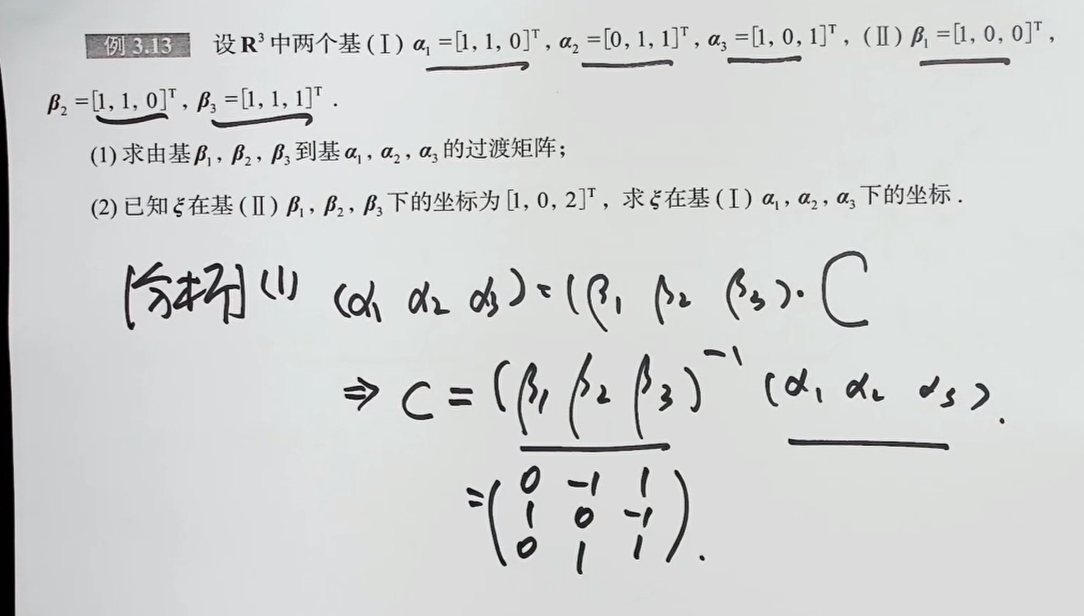 例 3.13 设R³中两个基(Ⅰ) α₁=[1, 1, 0]ᵀ, α₂=[0, 1, 1]ᵀ, α₃=[1, 0, 1]ᵀ, (Ⅱ) β₁=[1, 0, 0]ᵀ,
β₂=[1, 1, 0]ᵀ, β₃=[1, 1, 1]ᵀ.
(1) 求由基β₁, β₂, β₃到基α₁, α₂, α₃的过渡矩阵;
(2) 已知ξ在基(Ⅱ) β₁, β₂, β₃下的坐标为[1, 0, 2]ᵀ, 求ξ在基(Ⅰ) α₁, α₂, α₃下的坐标.
[分析] (1) (α₁ α₂ α₃) = (β₁ β₂ β₃)·C
⇒ C = (β₁ β₂ β₃)⁻¹ (α₁ α₂ α₃).
= (0 -1 1
1 0 -1
0 1 1).